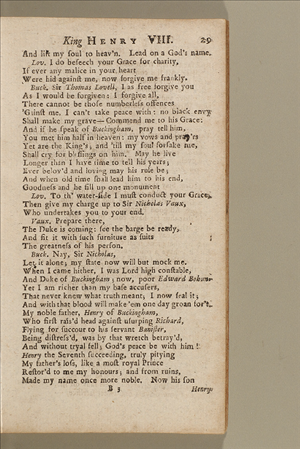 King HENRY VIII. 29
And lift my soul to heav'n. Lead on a God's name.
Lov. I do beseech your Grace for charity,
If ever any malice in your heart
Were hid against me, now forgive me frankly.
Buck. Sir Thomas Lovell, I as free forgive you
As I would be forgiven: I forgive all,
There cannot be those numberless offences
'Gainst me. I can't take peace with: no black envy
Shall make my grave—Commend me to his Grace:
And if he speak of Buckingham, pray tell him,
You met him half in heaven: my vows and pray'rs
Yet are the King's, and 'till my soul forsake me,
Shall cry for blessings on him. May he live
Longer than I have time to tell his years;
Ever belov'd and loving may his rule be;
And when old time shall lead him to his end,
Goodness and he fill up one monument
Lov. To th' water-side I must conduct your Grace,
Then give my charge up to Sir Nicholas Vaux,
Who undertakes you to your end.
Vaux. Prepare there,
The Duke is coming: see the barge be ready,
And fit it with such furniture as suits
The greatness of his person.
Buck. Nay, Sir Nicholas,
Let it alone; my state now will but mock me.
When I came hither, I was Lord high constable,
And Duke of Buckingham; now, poor Edward Bohun:
Yet I am richer than my base accusers,
That never knew what truth meant; I now seal it;
And with that blood will make 'em one day groan for't.
My noble father, Henry of Buckingham,
Who first rais'd head against usurping Richard,
Flying for succour to his servant Banister,
Being distress'd, was by that wretch betray'd,
And without tryal fell; God's peace be with him!
Henry the Seventh succeeding, truly pitying
My father's loss, like a most royal Prince
Restor'd to me my honours; and from ruins,
Made my name once more noble. Now his son
B 3 Henry